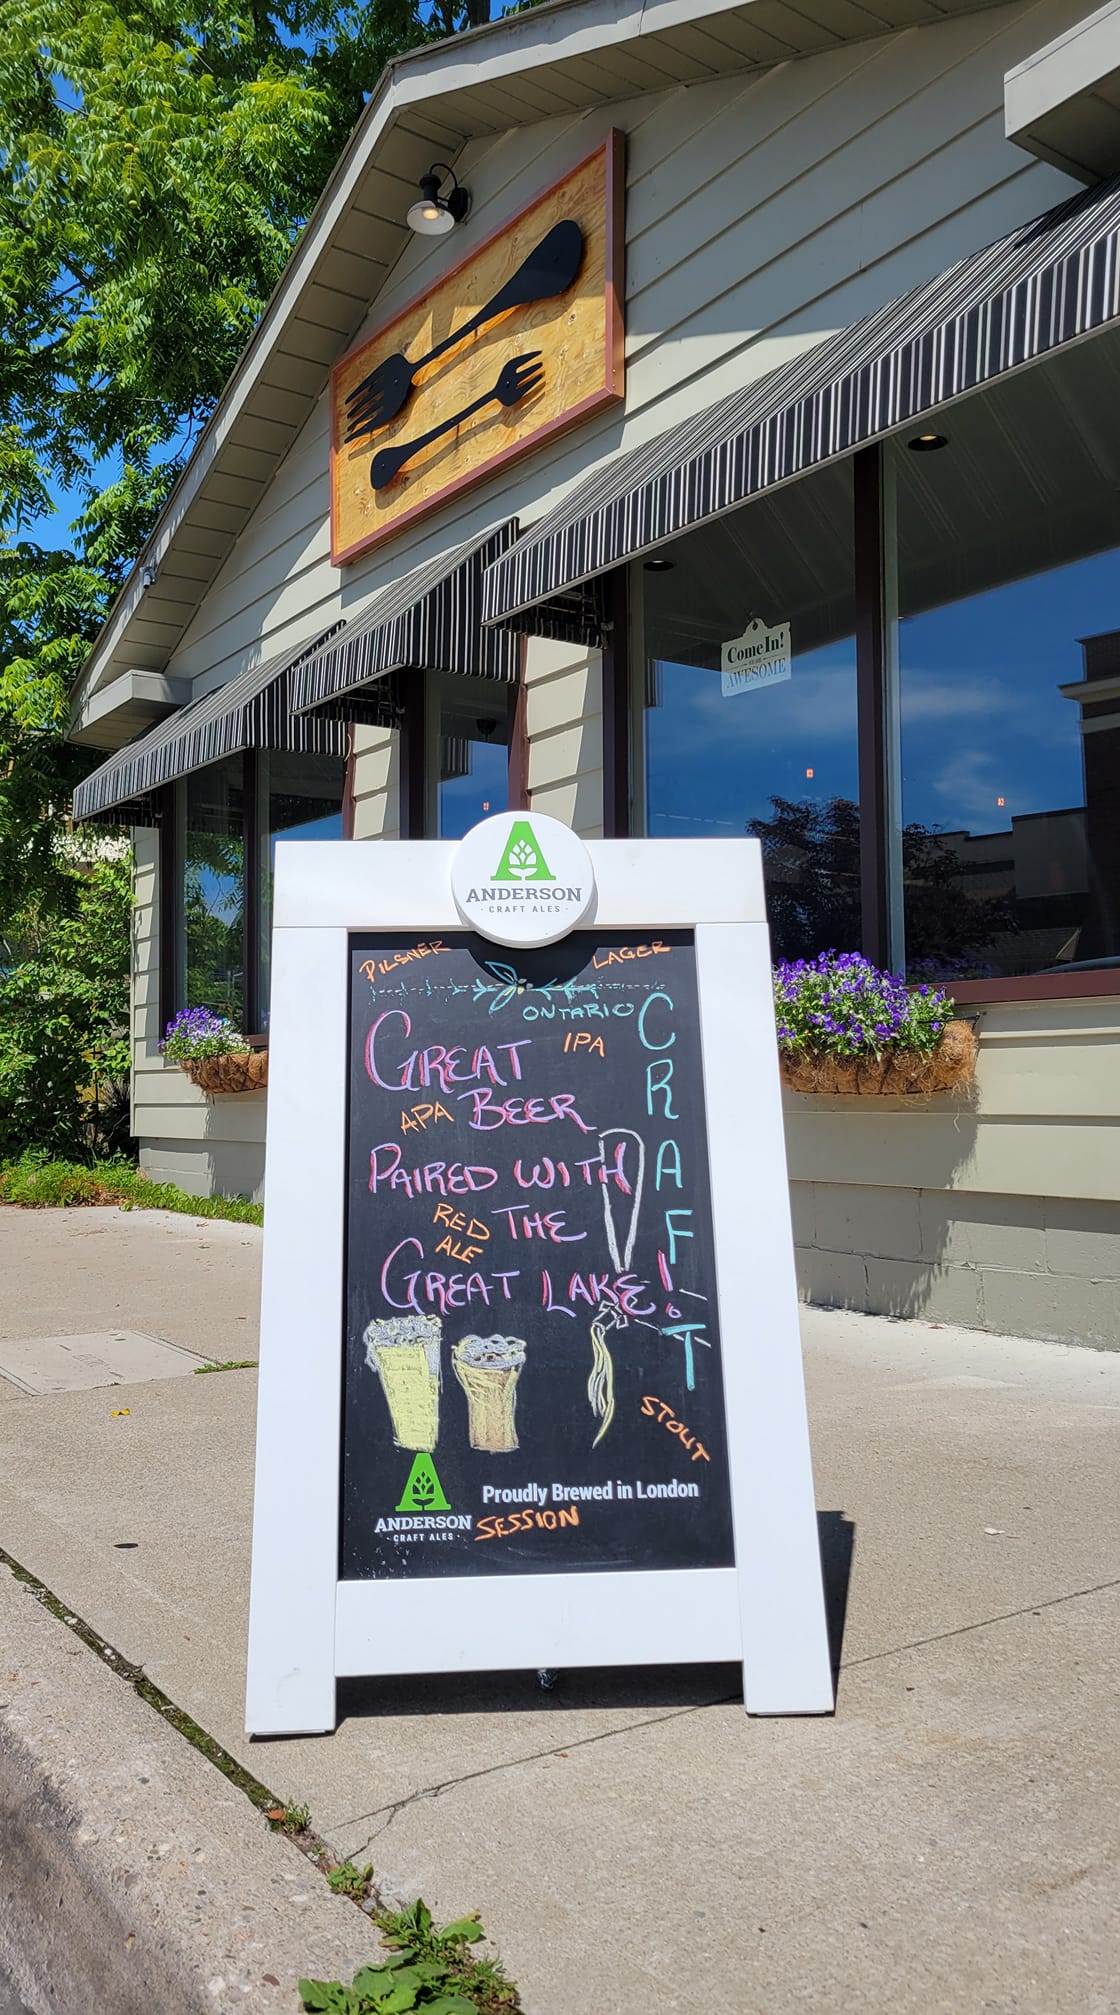 Come In!
AWESOME
ANDERSON
CRAFT ALES
PILSNER
LAGER
ONTARIO
CRAFT
IPA
GREAT
APA BEER
PAIRED WITH
RED THE
ALE
GREAT LAKE!
STOUT
Proudly Brewed in London
ANDERSON
CRAFT ALES
SESSION